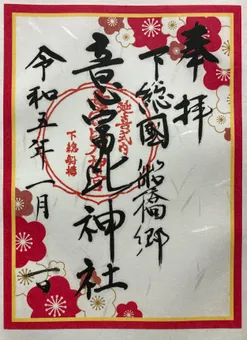 奉拝
下総國船橋郷
意富比神社
令和五年一月一日
延喜式内
下総船橋